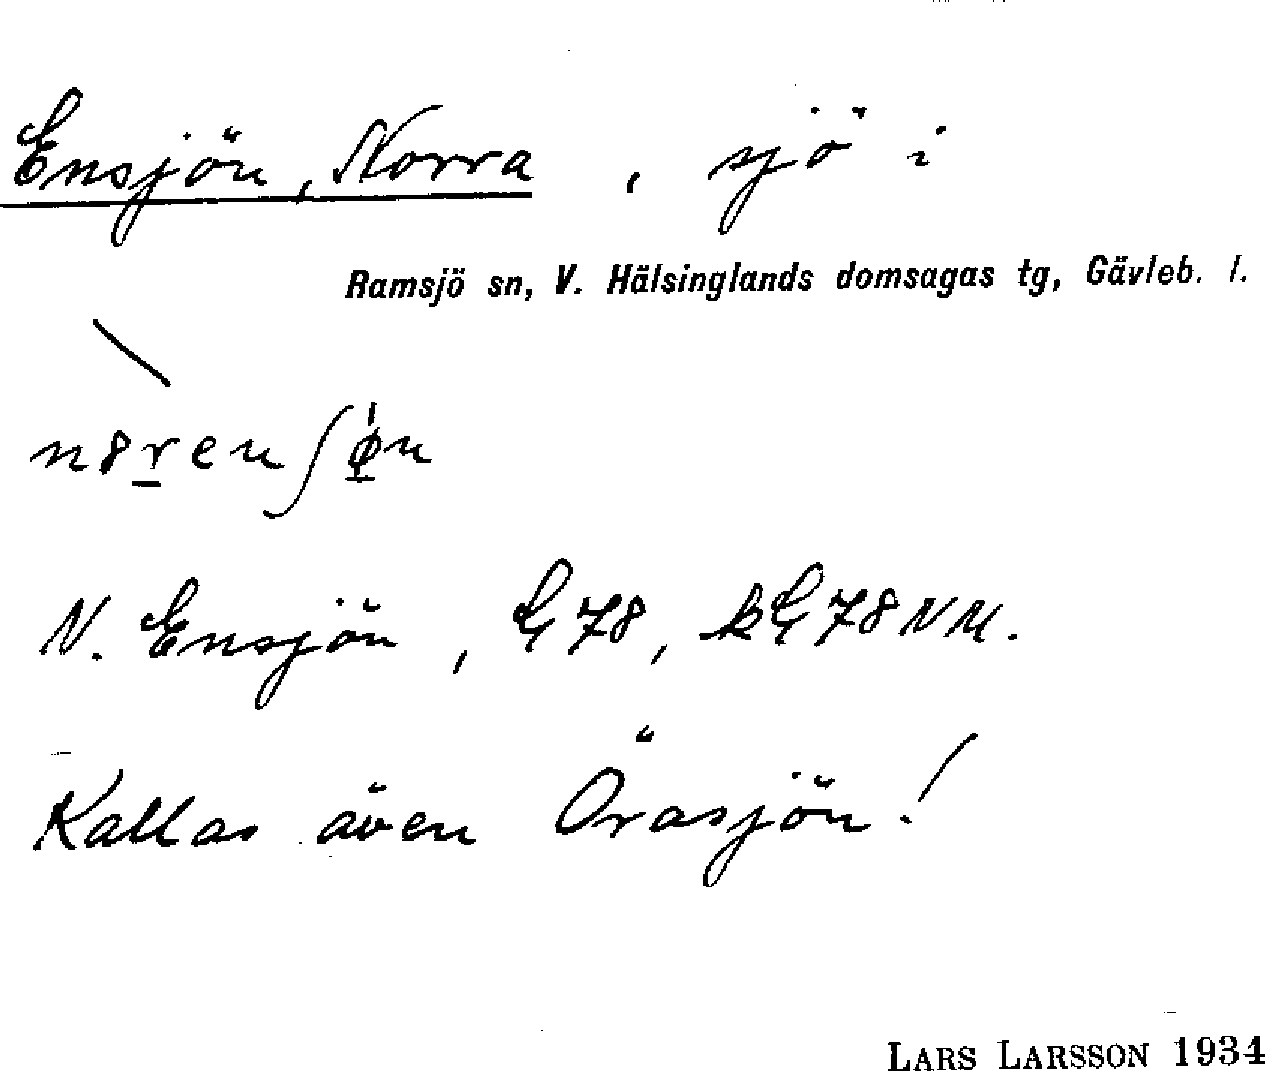 Ensjön, Norra, sjö i
Ramsjö sn, V. Hälsinglands domsagas tg, Gävleb. l.
N. Ensjön, G 78, kG 78 NM.
Kallas även Örasjön!
LARS LARSSON 1934